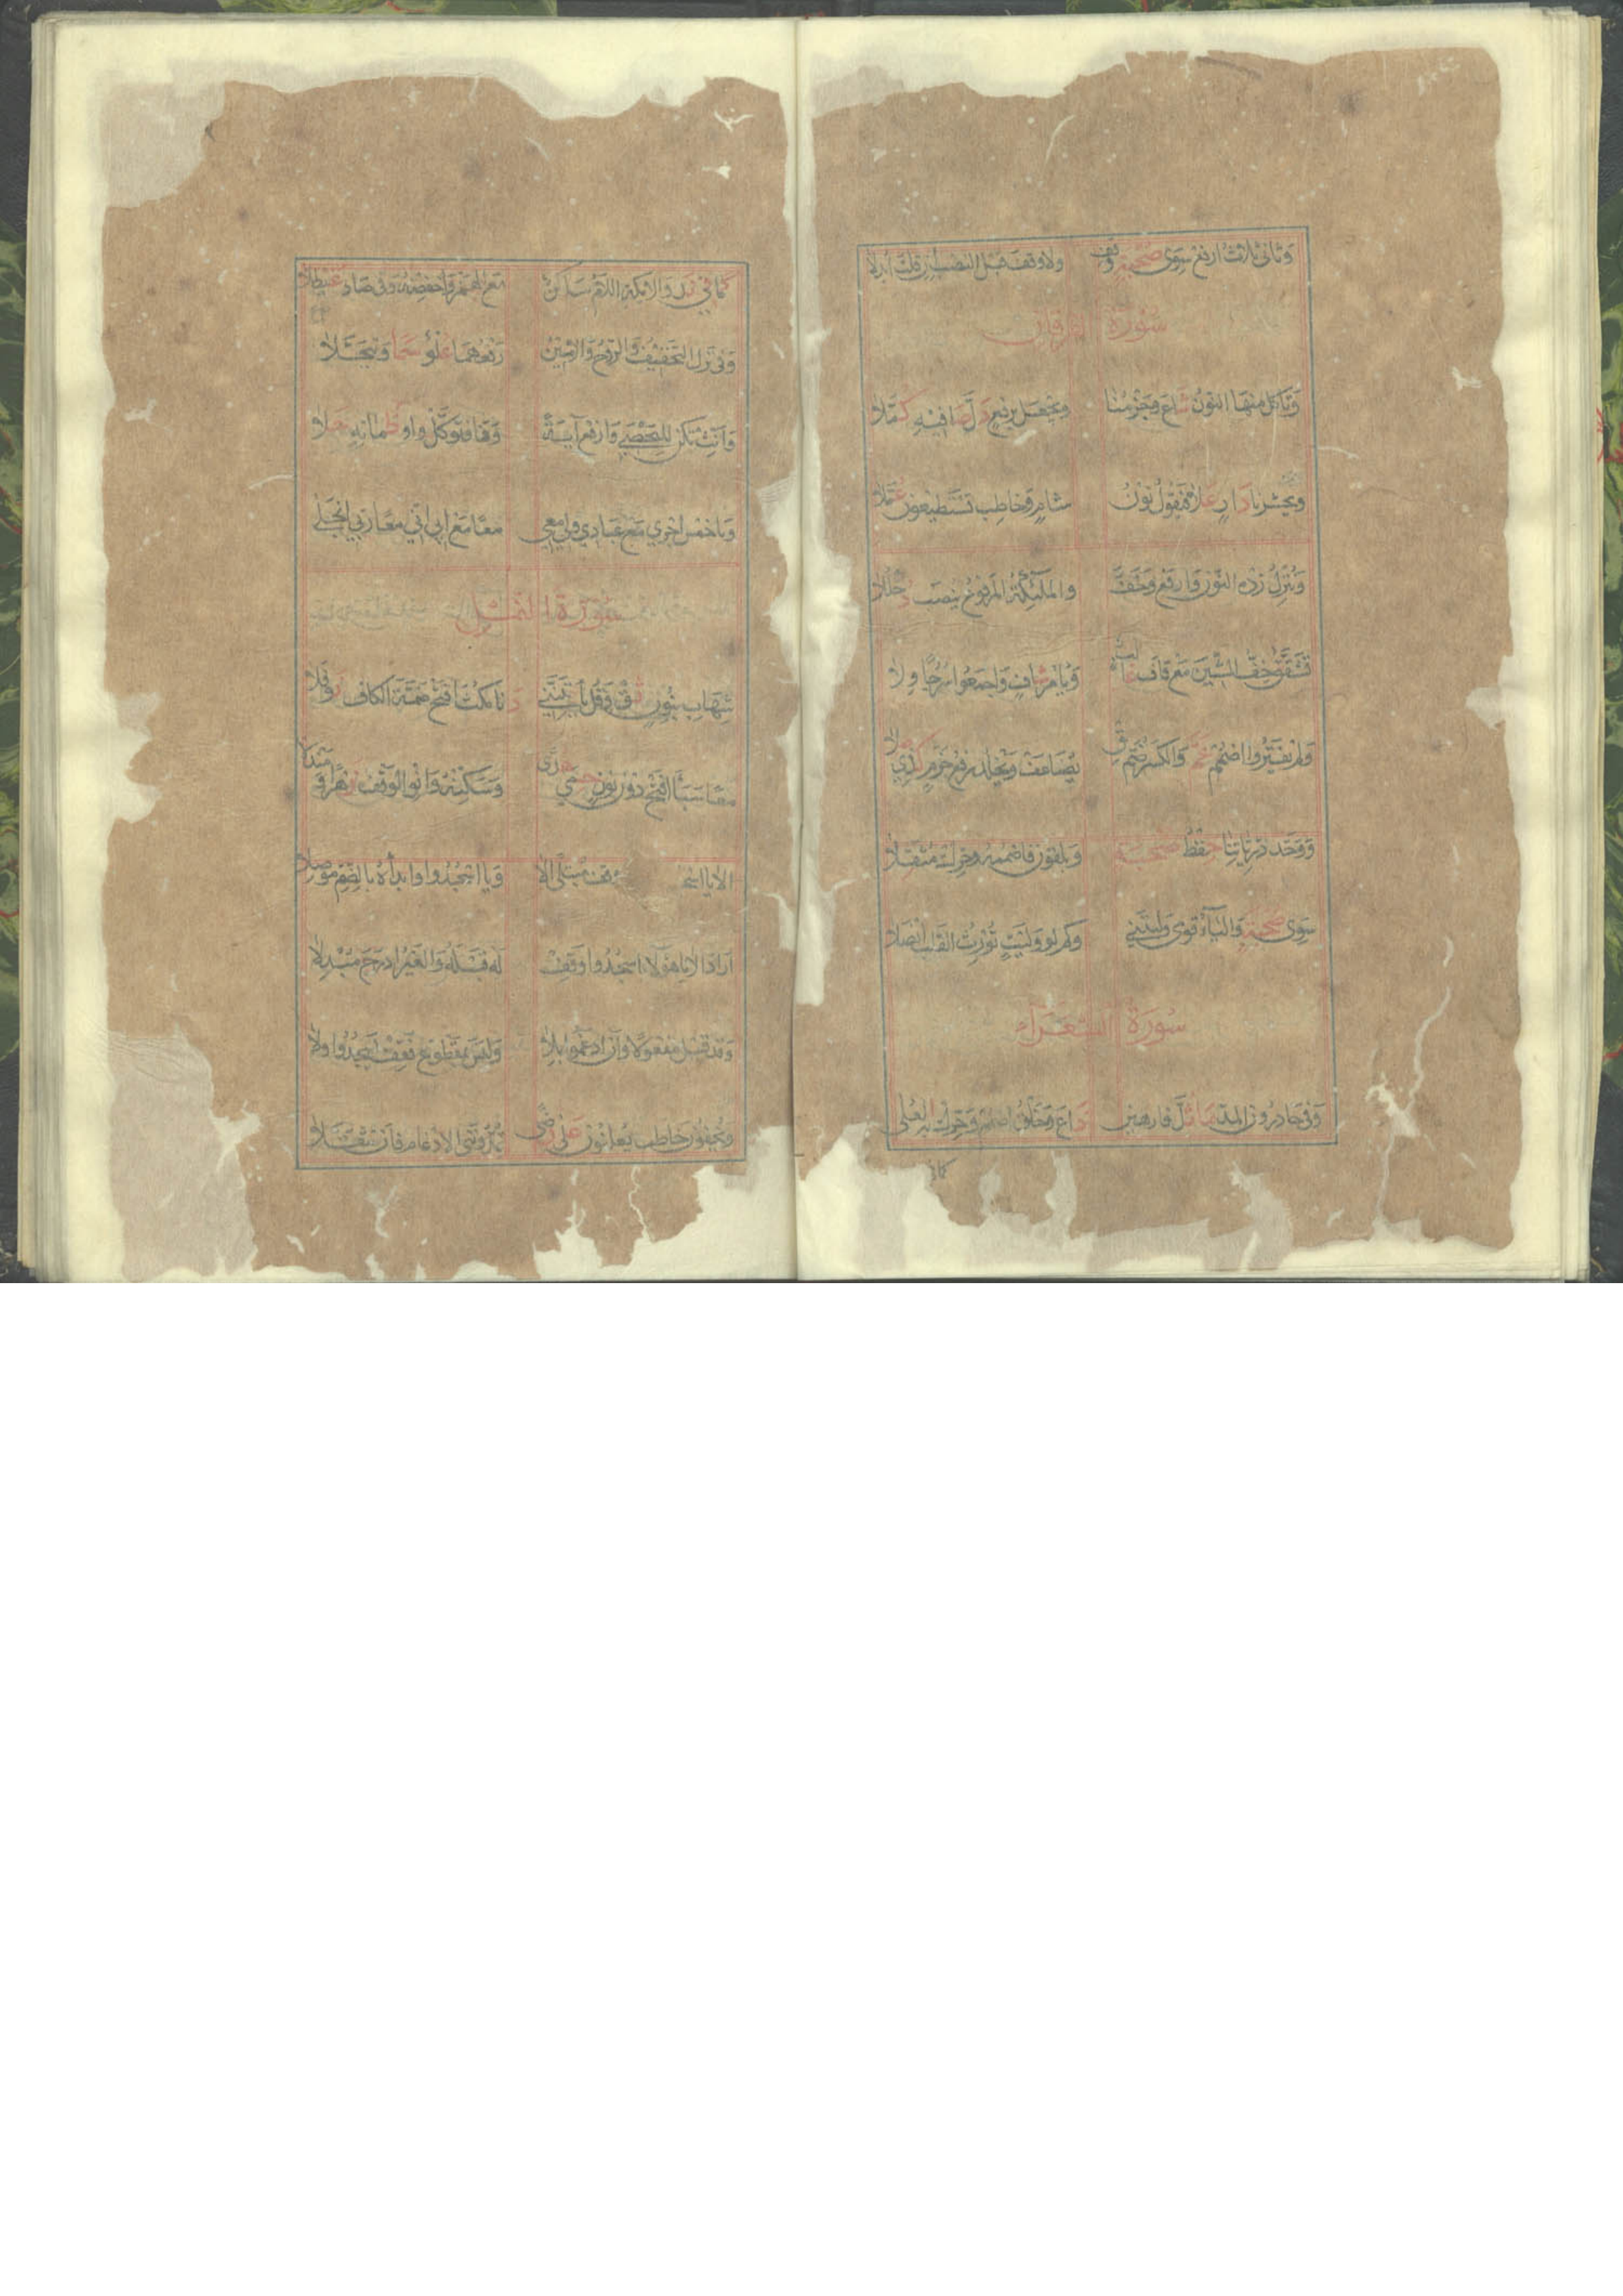 وثاني ثلاث ارفع سوى صحبة وقف ولا وقف قبل النصب ان قلت ابدلا
سورة الفرقان
وناكل منها النون شاع وجزمنا ويجعل برفع دل صافيه كملا
ويحشر يا دار علا فيقول نون شام وخاطب تستطيعون عملا
وننزل زده النون وارفع وخف والملئكة المرفوع ينصب دخللا
تشقق خف الشين مع قاف غالب ويامر شاف واجمعوا سرجا ولا
ولم يقتروا اضمم عم والكسر ضم ثق يضاعف ويخلد رفع جزم كذي صلا
ووحد ذرياتنا حفظ صحبة ويلقون فاضممه وحرك مثقلا
سوى صحبة والياء قومي وليتني وكم لو وليت تورث القلب انصلا
سورة الشعراء
وفي حاذرون المد ما ثل فارهين ذاع وخلق اضمم وحرك به العلى
كما
كما في ند والايكة اللام ساكن مع الهمز واخفضه وفي صاد غيطلا
وفي نزل التخفيف والروح والامين رفعهما علو سما وتبجلا
وانث تكن لليحصبي وارفع آية وفا فتوكل واو ظمانه حلا
ويا خمس اجري مع عبادي ولي معي معا مع ابي اني معا ربي انجلى
سورة النمل
شهاب بنون ثق وقل ياتينني دنا مكث افتح ضمة الكاف نوفلا
معا سبا افتح دون نون حمى هدى وسكنه وانو الوقف زهرا ومندلا
الا يا اسجدوا وقف مبتلى الا ويا اسجدوا وابدأه بالضم موصلا
اراد الا يا هؤلاء اسجدوا وقف له قبله والغير ادرج مبدلا
وقد قيل مفعولا وان ادغموا بلا وليس بمقطوع فقف يسجدوا ولا
ويخفون خاطب يعلنون على رضى تمدونني الادغام فاز فثقلا